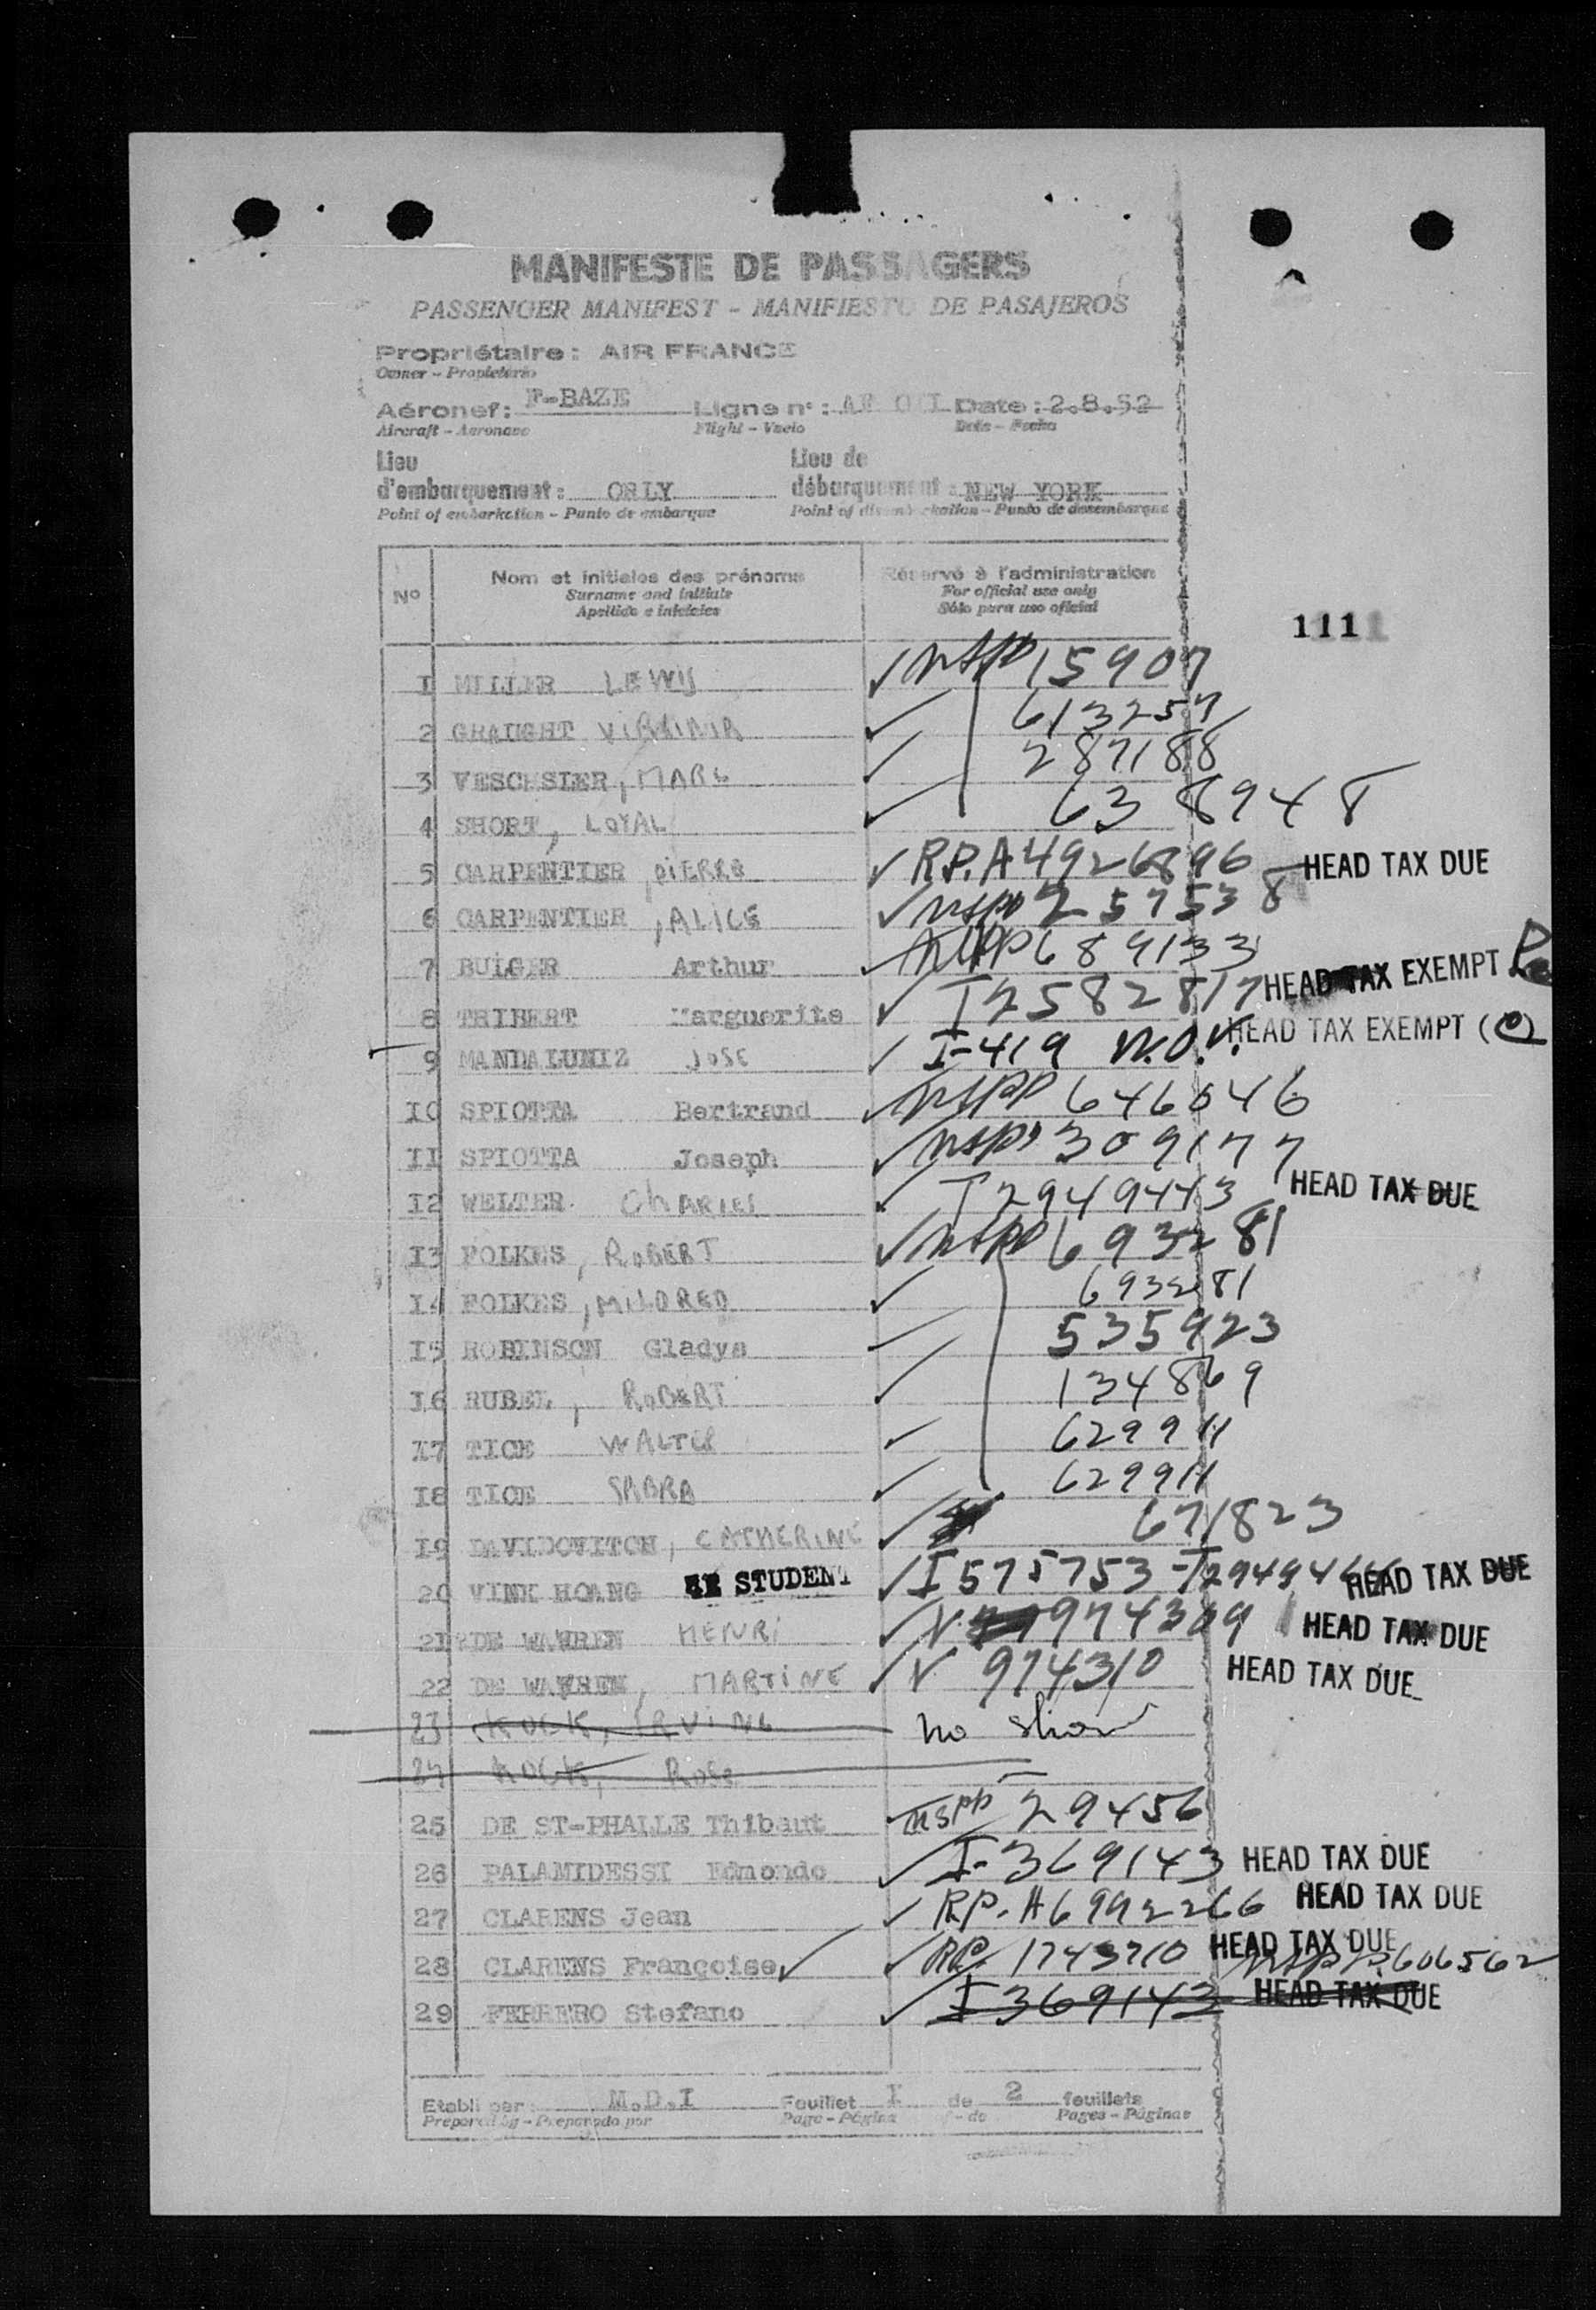 MANIFESTE DE PASSAGERS
PASSENGER MANIFEST - MANIFIESTO DE PASAJEROS
Propriétaire : AIR FRANCE
Owner - Propietario
Aéronef : F-BAZE Ligne n° : AF Date : 2.8.52
Aircraft - Aeronave Flight - Vuelo Date - Fecha
Lieu d'embarquement : ORLY Lieu de débarquement : NEW YORK
Point of embarkation - Punto de embarque Point of disembarkation - Punto de desembarque
N° Nom et initiales des prénoms Réservé à l'administration
Surname and initials For official use only
Apellido e iniciales Sólo para uso oficial
111
I MILLER LEWIS ✓ USPP 15907
2 GRAUGHT VIRGINIA ✓ 613257
3 MARC ✓ 287188
4 SHORT, LOYAL ✓ 638948
5 CARPENTIER, PIERRE ✓ R.P. A4926896 HEAD TAX DUE
6 CARPENTIER, ALICE ✓ USPP 257538
7 BULGER Arthur ✓ USPP 689133
8 TRIBERT Marguerite ✓ I 2582817 HEAD TAX EXEMPT
9 MANDALUNIZ JOSE ✓ I-419 HEAD TAX EXEMPT
I0 SPIOTTA Bertrand ✓ USPP 646046
II SPIOTTA Joseph ✓ USPP 309177
I2 WELTER CHARLES ✓ I 2949443 HEAD TAX DUE
I3 FOLKES, ROBERT ✓ USPP 693281
I4 FOLKES, MILDRED ✓ 693281
I5 ROBINSON Gladys ✓ 535923
I6 RUBEL, ROBERT ✓ 134869
I7 TICE WALTER ✓ 629911
I8 TICE SABRA ✓ 629911
I9 DAVIDOVITCH, CATHERINE ✓ 671823
20 VINH HOANG STUDENT ✓ I 575753 HEAD TAX DUE
2I DE HENRI ✓ V 974309 HEAD TAX DUE
22 DE MARTINE ✓ V 974310 HEAD TAX DUE
23 KOCK, IRVING no show
24 KOCK, Rose
25 DE ST-PHALLE Thibaut USPP 29456
26 PALAMIDESSI Edmondo ✓ I-369143 HEAD TAX DUE
27 CLARENS Jean ✓ RP. A6992266 HEAD TAX DUE
28 CLARENS Françoise ✓ ✓ RP. 1743710 HEAD TAX DUE
USPP 606562
29 FERRERO Stefano ✓ I 369143 HEAD TAX DUE
Etabli par M.D.I Feuillet I de 2 feuillets
Prepared by - Preparado por Page - Página of - de Pages - Páginas